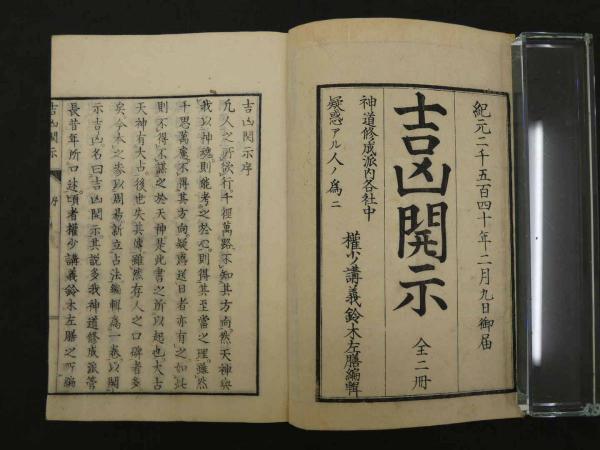 紀元二千五百四十年二月九日御届
吉凶開示 全二冊
神道修成派内各社中
疑惑アル人ノ爲ニ
權少講義鈴木左膳編輯
吉凶開示序
凡人之所欲行千徑萬路不知其方向然天神與
我以神魂則能考之於心則得其至當之理雖然
千思萬慮不得其方向疑惑送日者亦有之如此
則不得不謀之於天神是此書之所以起也太古
天神有太占後也失其傳雖然存人之口碑者多
矣今本之參以周易新立占法編輯爲一卷以開
示吉凶名曰吉凶開示其說多我神道修成派管
長昔年所口述頃者權少講義鈴木左膳之所編
吉凶開示 序